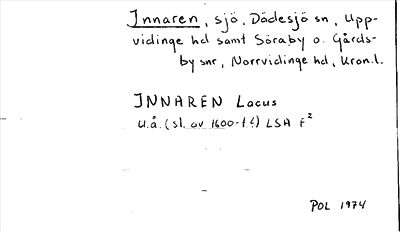 Innaren, sjö, Dädesjö sn, Upp-
vidinge hd samt Söraby o. Gårds-
by snr, Norrvidinge hd, Kron.l.
INNAREN Lacus
u.å. (sl. av 1600-t.?) LSA F²
POL 1974